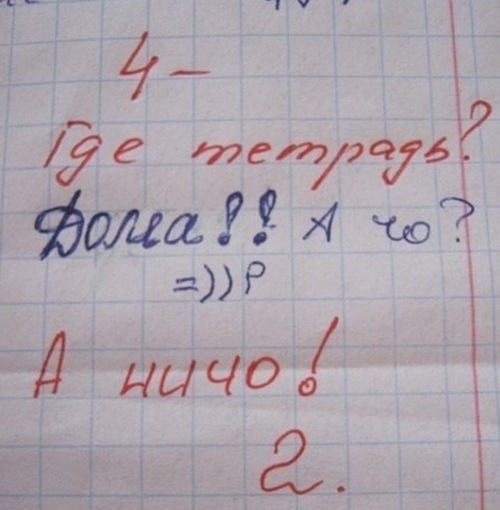 4 –
Где тетрадь?
Дома!! А чо?
=))P
А ничо!
2.